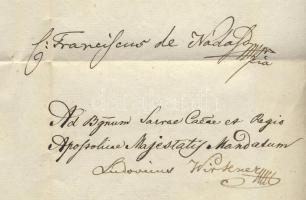 C: Franciscus de Nádasd
Ad Bgnum Sacrae Caeae et Regio
Apostolicae Majestatis Mandatum
Ludovicus Wirkner